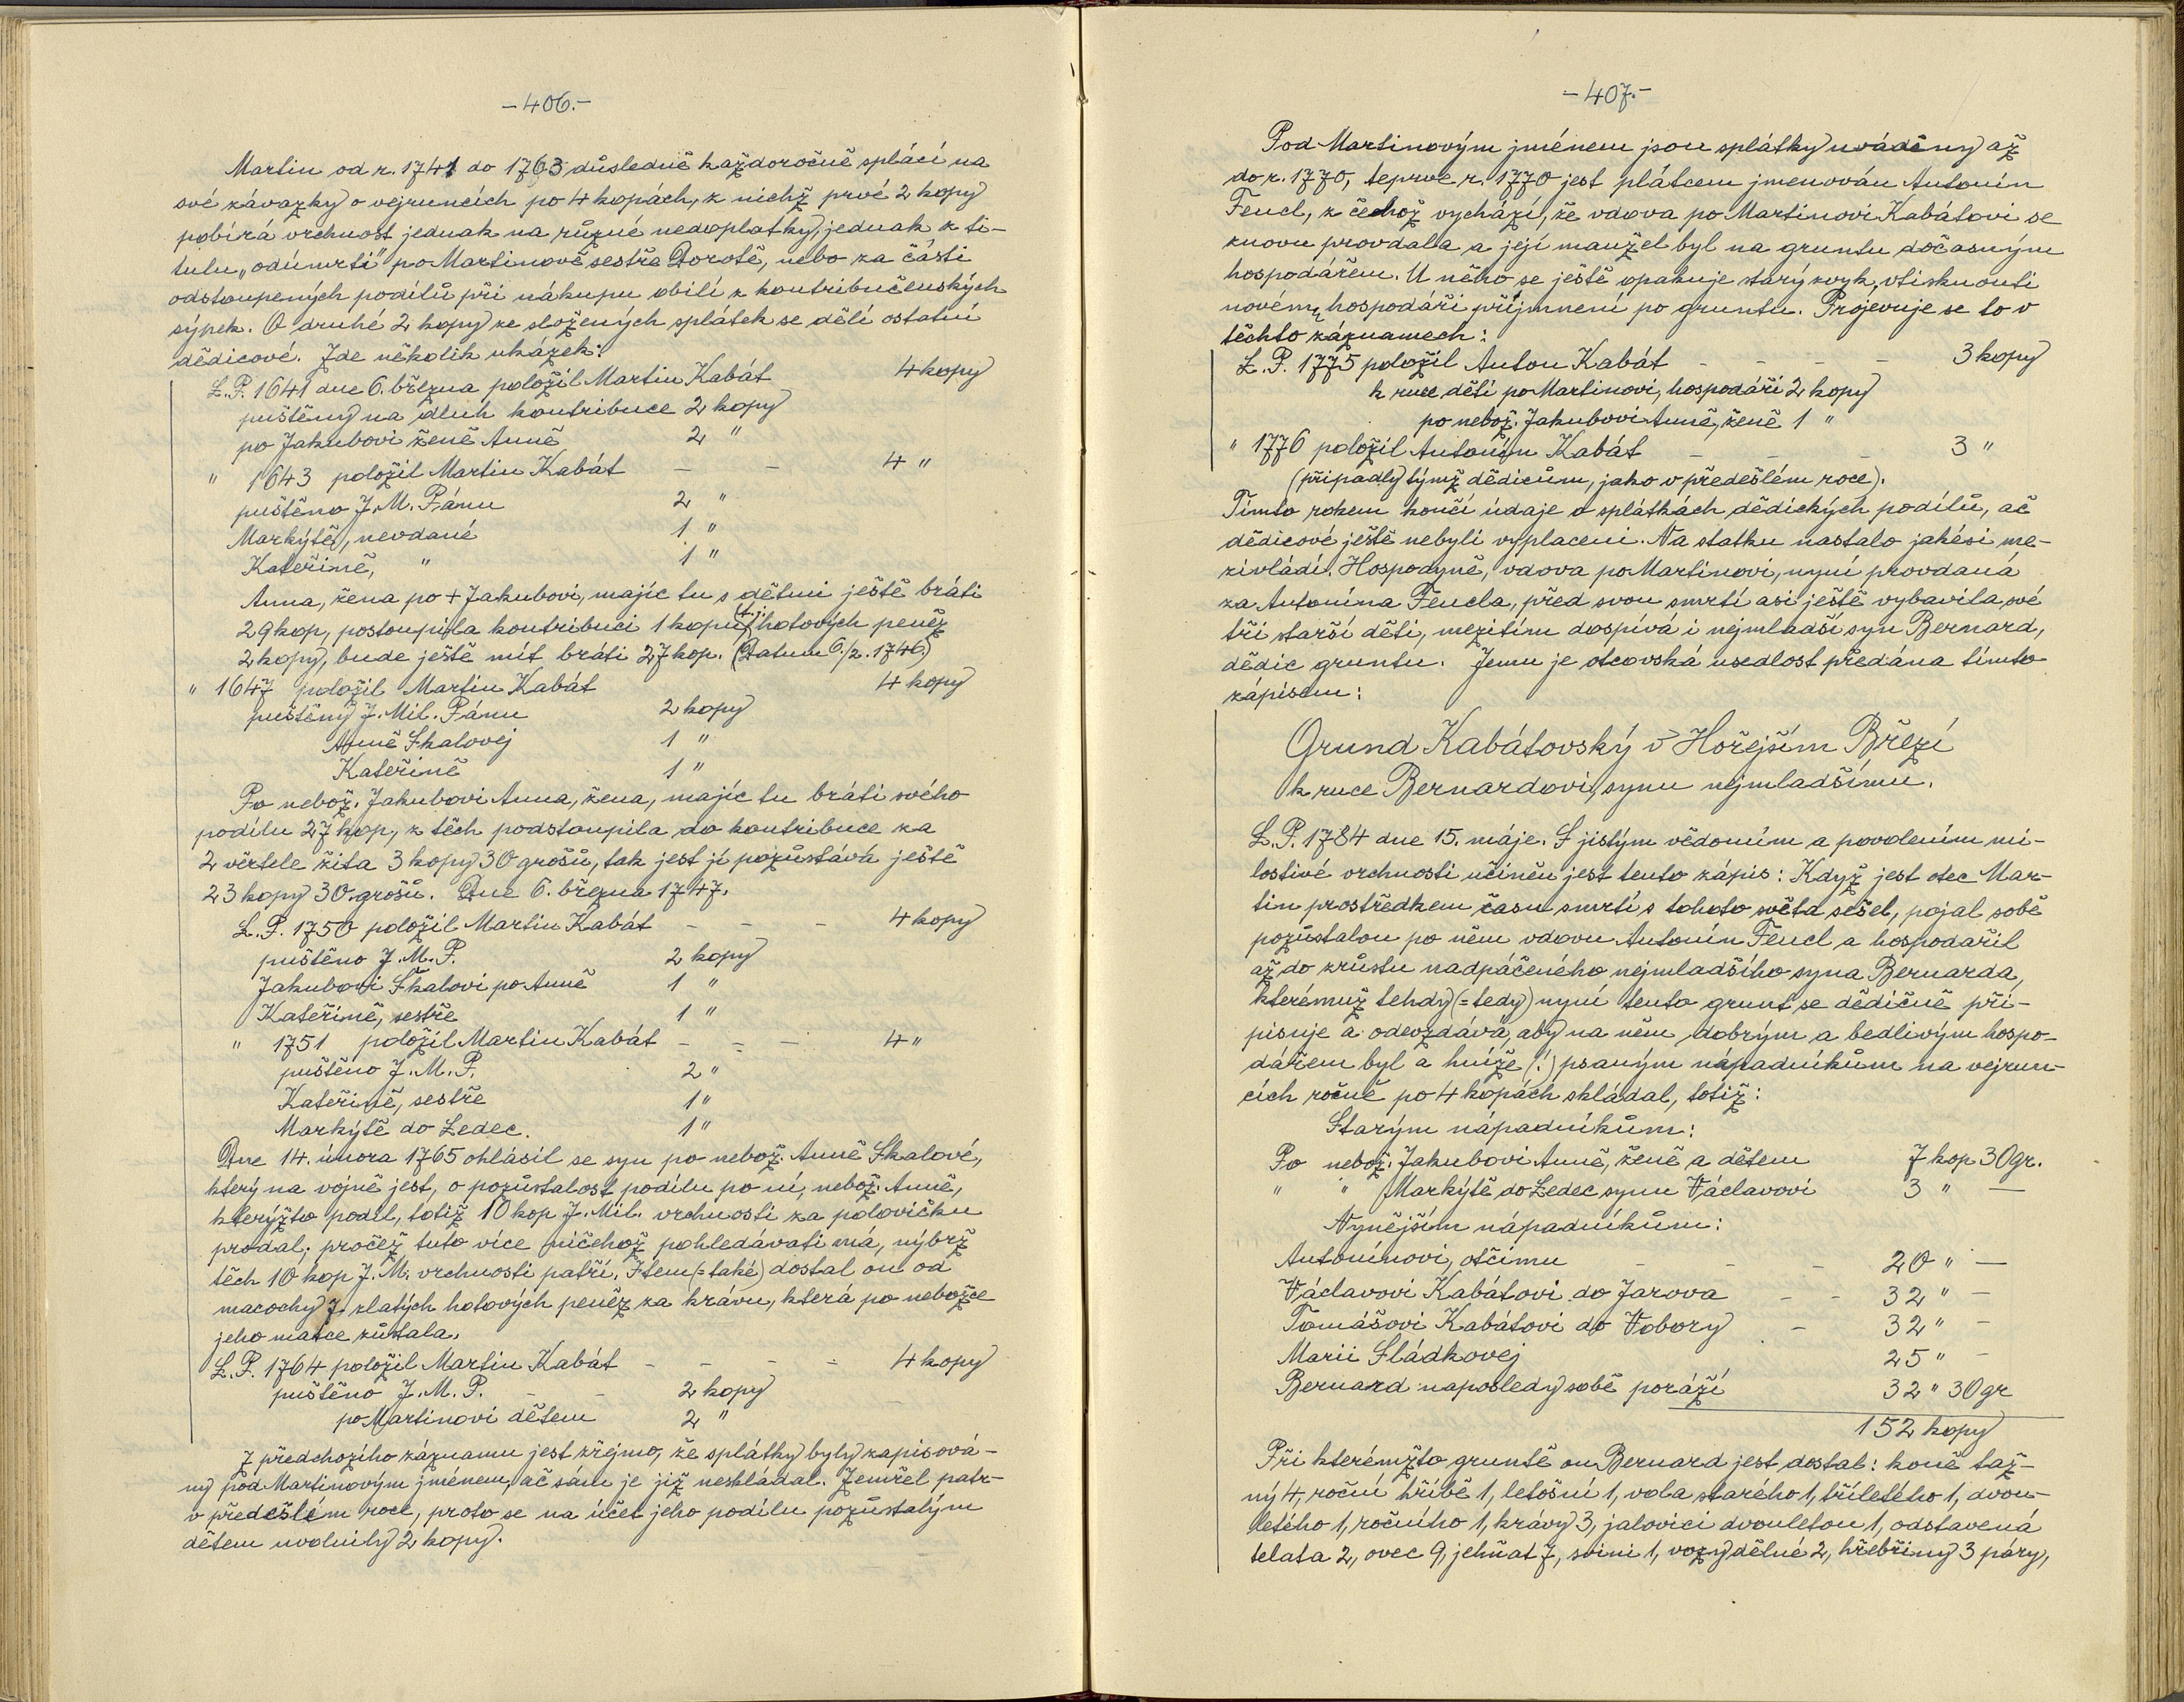 -406.-
Martin od r. 1741 do 1763 důsledně každoročně splácí na
své závazky o vejruncích po 4 kopách, z nichž prvé 2 kopy
pobírá vrchnost jednak na různé nedoplatky, jednak z ti-
tulu „odúmrti" po Martinově sestře Dorotě, nebo za části
odstoupených podílů při nákupu obilí z kontribučenských
sýpek. O druhé 2 kopy ze složených splátek se dělí ostatní
dědicové. Zde několik ukázek:
L.P. 1641 dne 6. března položil Martin Kabát 4 kopy
puštěny na dluh kontribuce 2 kopy
po Jakubovi ženě Anně 2 "
" 1643 položil Martin Kabát - - 4 "
puštěno J.M. Pánu 2 "
Markýtě, nevdané 1 "
Kateřině, " 1 "
Anna, žena po + Jakubovi, majíc tu s dětmi ještě bráti
29 kop, postoupila kontribuci 1 kopu, (t.j.) hotových peněz
2 kopy, bude ještě mít bráti 27 kop. (Datum 6./2. 1746.)
" 1647 položil Martin Kabát 4 kopy
puštěny J. Mil. Pánu 2 kopy
Anně Skalovej 1 "
Kateřině 1 "
Po nebož. Jakubovi Anna, žena, majíc tu bráti svého
podílu 27 kop, z těch podstoupila do kontribuce za
2 věrtele žita 3 kopy 30 grošů, tak jest jí pozůstává ještě
23 kopy 30 grošů. Dne 6. března 1747.
L.P. 1750 položil Martin Kabát - - - 4 kopy
puštěno J.M.P. 2 kopy
Jakubovi Škalovi po Anně 1 "
Kateřině, sestře 1 "
" 1751 položil Martin Kabát - - - 4 "
puštěno J.M.P. 2 "
Kateřině, sestře 1 "
Markýtě do Ledec. 1 "
Dne 14. února 1765 ohlásil se syn po nebož. Anně Skalové,
který na vojně jest, o pozůstalost podílu po ní, nebož. Anně,
kterýžto podíl, totiž 10 kop J. Mil. vrchnosti za polovičku
prodal; pročež tuto více ničehož pohledávati má, nýbrž
těch 10 kop J.M. vrchnosti patří. Item (= také) dostal on od
macochy 7 zlatých hotových peněz za krávu, která po nebožce
jeho matce zůstala.
L.P. 1764 položil Martin Kabát - - - - 4 kopy
puštěno J.M.P. - - 2 kopy
po Martinovi dětem 2 "
Z předchozího záznamu jest zřejmo, že splátky byly zapisová-
ny pod Martinovým jménem, ač sám je již neskládal. Zemřel patr-
v předešlém roce, proto se na účet jeho podílu pozůstalým
dětem uvolnily 2 kopy.
-407.-
Pod Martinovým jménem jsou splátky uváděny až
do r. 1770, teprve r. 1770 jest plátcem jmenován Antonín
Fencl, z čehož vychází, že vdova po Martinovi Kabátovi se
znovu provdala a její manžel byl na gruntu dočasným
hospodářem. U něho se ještě opakuje starý zvyk, vtisknouti
novému hospodáři příjmení po gruntu. Projevuje se to v
těchto záznamech:
L.P. 1775 položil Anton Kabát - - - - 3 kopy
k ruce dětí po Martinovi, hospodáři 2 kopy
po nebož. Jakubovi Anně, ženě 1 "
" 1776 položil Antonín Kabát - - - 3 "
(připadly týmž dědicům, jako v předešlém roce).
Tímto rokem končí údaje o splátkách dědických podílů, ač
dědicové ještě nebyli vyplaceni. Na statku nastalo jakési me-
zivládí. Hospodyně, vdova po Martinovi, nyní provdaná
za Antonína Fencla, před svou smrtí asi ještě vybavila své
tři starší děti, mezitím dospívá i nejmladší syn Bernard,
dědic gruntu. Jemu je otcovská usedlost předána tímto
zápisem:
Grund Kabátovský v Hořejším Březí
k ruce Bernardovi, synu nejmladšímu.
L.P. 1784 dne 15. máje. S jistým vědomím a povolením mi-
lostivé vrchnosti učiněn jest tento zápis: Když jest otec Mar-
tin prostředkem času smrtí s tohoto světa sešel, pojal sobě
pozůstalou po něm vdovu Antonín Fencl a hospodařil
až do zrůstu nadpáčeného nejmladšího syna Bernarda,
kterémuž tehdy (= tedy) nyní tento grunt se dědičně při-
pisuje a odevzdává, aby na něm dobrým a bedlivým hospo-
dářem byl a huíže (!) psaným nápadníkům na vejrun-
cích ročně po 4 kopách skládal, totiž:
Starým nápadníkům:
Po nebož. Jakubovi Anně, ženě a dětem 7 kop 30 gr.
" " Markýtě do Ledec synu Václavovi 3 " —
Nynějším nápadníkům:
Antonínovi, otčímu - - - 20 " —
Václavovi Kabátovi do Jarova - - 32 " —
Tomášovi Kabátovi do Vobory - 32 " —
Marii Sládkovej 25 " —
Bernard naposledy sobě poráží 32 " 30 gr
152 kopy
Při kterémžto gruntě on Bernard jest dostal: koně taž-
ný 4, roční hříbě 1, letošní 1, vola starého 1, tříletého 1, dvou-
letého 1, ročního 1, krávy 3, jalovici dvouletou 1, odstavená
telata 2, ovec 9, jehňat 7, svini 1, vozy dělné 2, hřebřiny 3 páry,